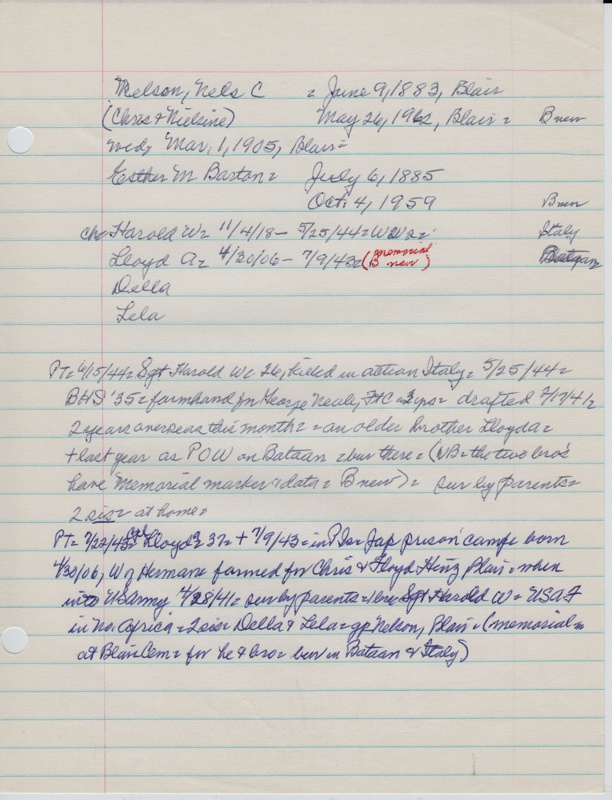 Nelson, Nels C = June 9, 1883, Blair
(Chris & Nielsine) May 26, 1962, Blair = B new
wed, Mar, 1, 1905, Blair =
Esther M Barton = July 6, 1885
Oct. 4, 1959 B new
ch= Harold W= 11/4/18 - 5/25/44 = WW2 = Italy
Lloyd A= 4/30/06 - 7/9/43 = (memorial B new) Bataan
Della
Lela
PT= 6/15/44 = Sgt Harold W= 26, killed in action Italy = 5/25/44 =
BHS '35 = farmhand for George Nealy, FtC = drafted
2 years overseas this month = an older brother Lloyd a =
+ last year as POW on Bataan = bur there = (NB = the two bro's
have Memorial marker & data = B new) = sur by parents =
2 sis = at home =
PT= 7/22/43 = Cpl Lloyd a 37 = + 7/9/43 = in PI = Jap prison camp born
4/30/06, W of Herman farmed for Chris & Floyd Heinz Plain = when
into US army 4/28/41 = sur by parents = bro Sgt Harold W = USAF
in No. Africa = 2 sis Della & Lela = gp Nelson, Blair = (memorial =
at Blair Cem = for he & bro = bur in Bataan & Italy)